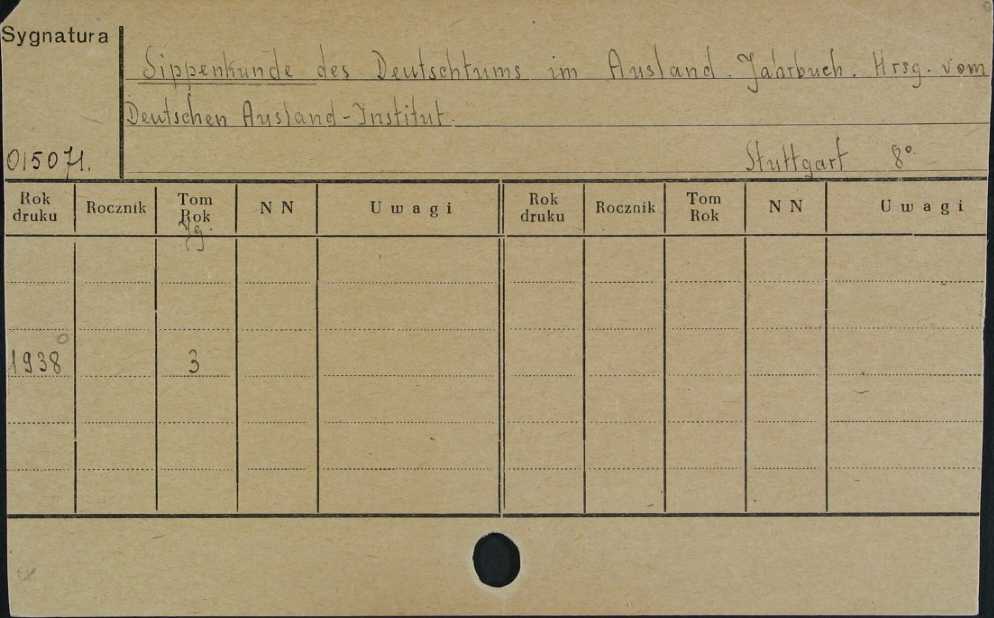 Sygnatura
Sippenkunde des Deutschtums im Ausland. Jahrbuch. Hrsg. vom
Deutschen Ausland-Institut.
015071. Stuttgart 8°
Rok druku Rocznik Tom Rok Jg. NN Uwagi Rok druku Rocznik Tom Rok NN Uwagi
1938 3